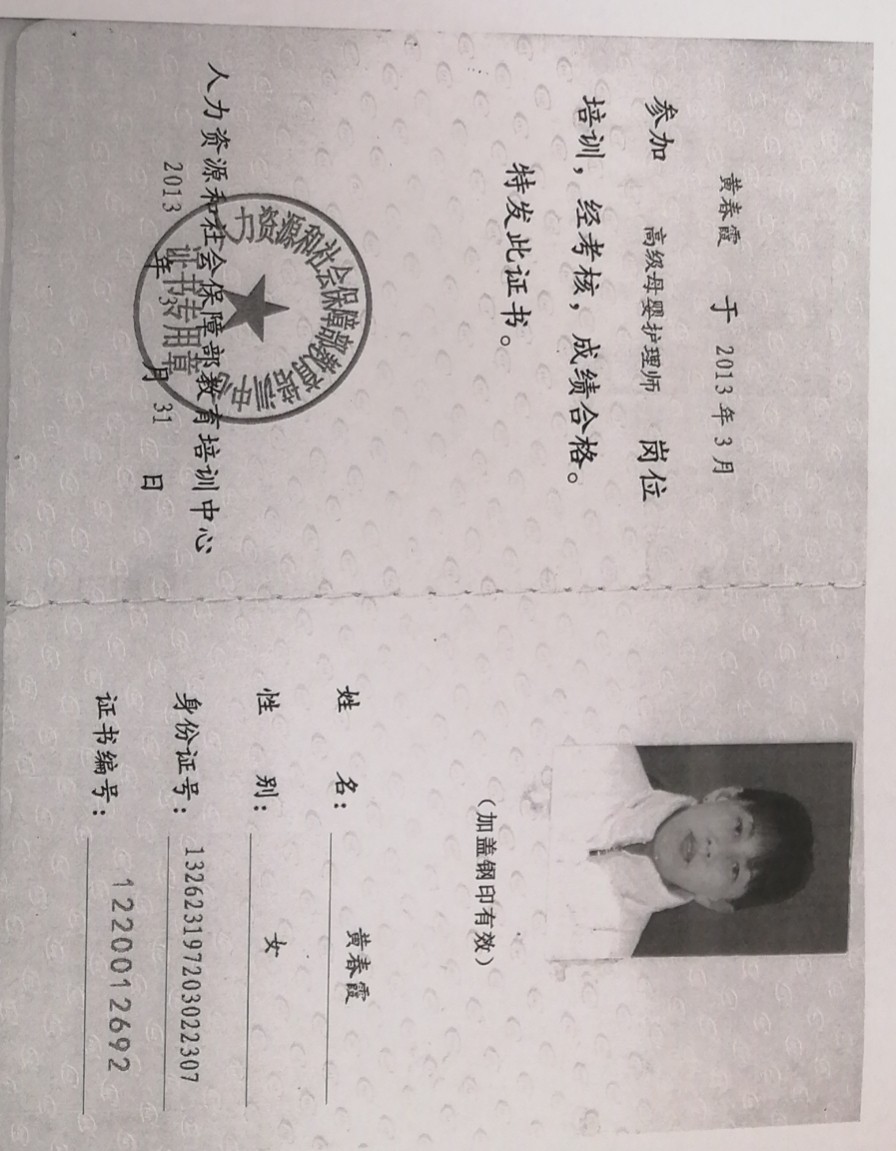 黄春霞 于 2013年3月
参加 高级母婴护理师 岗位
培训，经考核，成绩合格。
特发此证书。
人力资源和社会保障部教育培训中心
2013 年 3 月 31 日
力资源和社会保障部教育培训中心
证书专用章
（加盖钢印有效）
姓 名： 黄春霞
性 别： 女
身份证号： 132623197203022307
证书编号： 1220012692